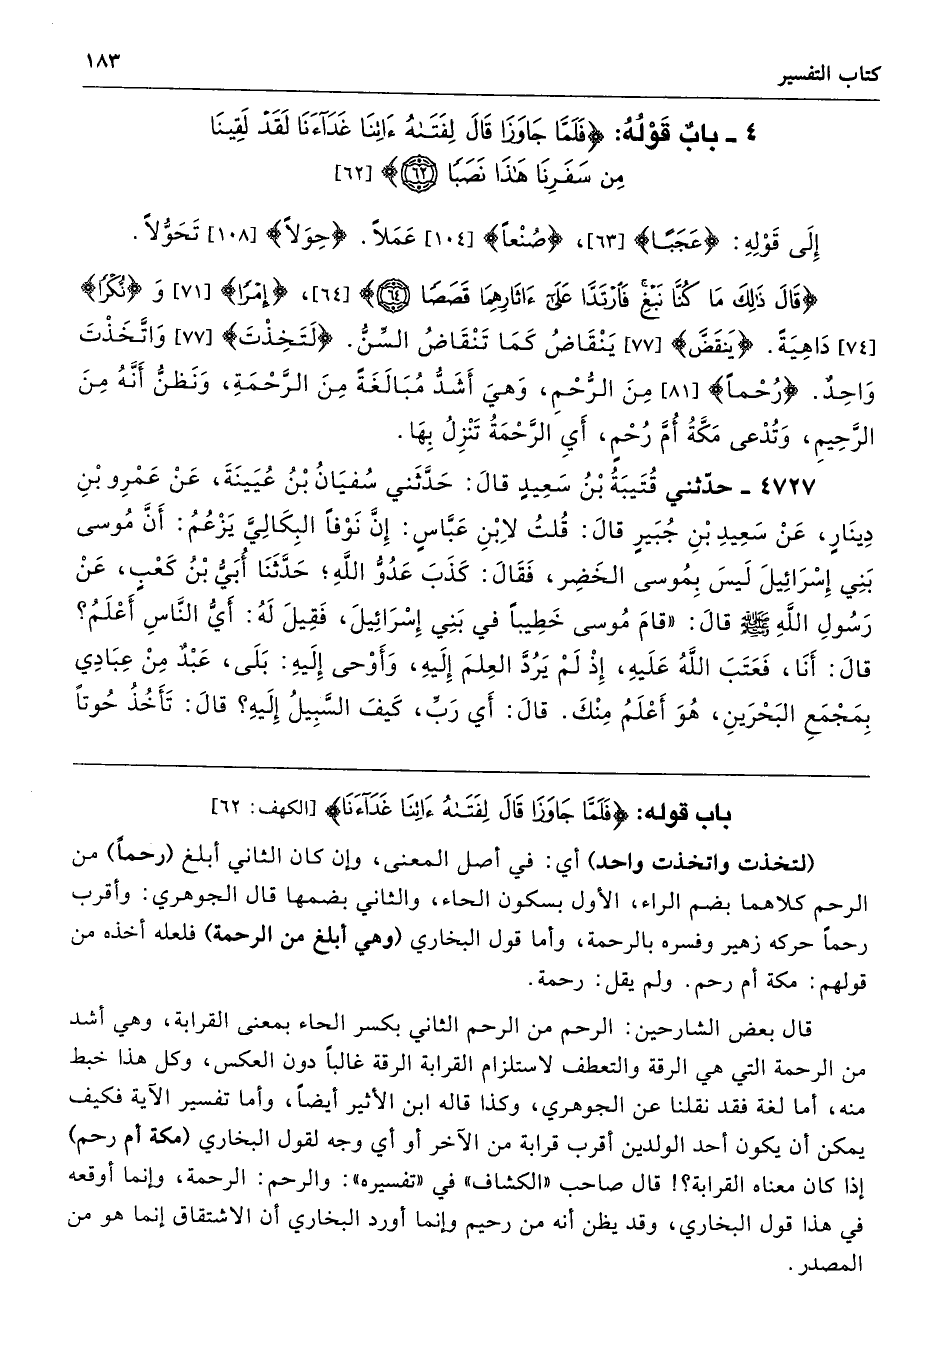 كتاب التفسير
١٨٣
٤ ـ بابٌ قَوْلُهُ: ﴿فَلَمَّا جَاوَزَا قَالَ لِفَتَىٰهُ ءَاتِنَا غَدَآءَنَا لَقَدْ لَقِينَا
مِن سَفَرِنَا هَٰذَا نَصَبًا ۝٦٢﴾ [٦٢]
إِلَى قَوْلِهِ: ﴿عَجَبًا﴾ [٦٣]، ﴿صُنْعاً﴾ [١٠٤] عَمَلاً. ﴿حِوَلاً﴾ [١٠٨] تَحَوُّلاً.
﴿قَالَ ذَٰلِكَ مَا كُنَّا نَبْغِ فَٱرْتَدَّا عَلَىٰٓ ءَاثَارِهِمَا قَصَصًا ۝٦٤﴾ [٦٤]، ﴿إِمْرًا﴾ [٧١] وَ ﴿نُكْرًا﴾
[٧٤] دَاهِيَةً. ﴿يَنقَضَّ﴾ [٧٧] يَنْقَاضُ كَمَا تَنْقَاضُ السِّنُّ. ﴿لَتَخِذْتَ﴾ [٧٧] وَاتَّخَذْتَ
وَاحِدٌ. ﴿رُحْماً﴾ [٨١] مِنَ الرُّحْمِ، وَهِيَ أَشَدُّ مُبَالَغَةً مِنَ الرَّحْمَةِ، وَنَظُنُّ أَنَّهُ مِنَ
الرَّحِيمِ، وَتُدْعى مَكَّةُ أُمَّ رُحْمٍ، أَيِ الرَّحْمَةُ تَنْزِلُ بِهَا.
٤٧٢٧ ـ حدّثني قُتَيبَةُ بْنُ سَعِيدٍ قالَ: حَدَّثَني سُفيَانُ بْنُ عُيَينَةَ، عَنْ عَمْرِو بْنِ
دِينَارٍ، عَنْ سَعِيدِ بْنِ جُبَيرٍ قالَ: قُلتُ لاِبْنِ عَبَّاسٍ: إِنَّ نَوْفاً البِكَالِيَّ يَزْعُمُ: أَنَّ مُوسى
بَنِي إِسْرَائِيلَ لَيسَ بِمُوسى الخَضِرِ، فَقَالَ: كَذَبَ عَدُوُّ اللَّهِ؛ حَدَّثَنَا أُبَيُّ بْنُ كَعْبٍ، عَنْ
رَسُولِ اللَّهِ ﷺ قالَ: «قامَ مُوسى خَطِيباً في بَنِي إِسْرَائِيلَ، فَقِيلَ لَهُ: أَيُّ النَّاسِ أَعْلَمُ؟
قالَ: أَنَا، فَعَتَبَ اللَّهُ عَلَيهِ، إِذْ لَمْ يَرُدَّ العِلمَ إِلَيهِ، وَأَوْحى إِلَيهِ: بَلَى، عَبْدٌ مِنْ عِبَادِي
بِمَجْمَعِ البَحْرَينِ، هُوَ أَعْلَمُ مِنْكَ. قالَ: أَي رَبِّ، كَيفَ السَّبِيلُ إِلَيهِ؟ قالَ: تَأْخُذُ حُوتاً
باب قوله: ﴿فَلَمَّا جَاوَزَا قَالَ لِفَتَىٰهُ ءَاتِنَا غَدَآءَنَا﴾ [الكهف: ٦٢]
(لتخذت واتخذت واحد) أي: في أصل المعنى، وإن كان الثاني أبلغ (رحماً) من
الرحم كلاهما بضم الراء، الأول بسكون الحاء، والثاني بضمها قال الجوهري: وأقرب
رحماً حركه زهير وفسره بالرحمة، وأما قول البخاري (وهي أبلغ من الرحمة) فلعله أخذه من
قولهم: مكة أم رحم. ولم يقل: رحمة.
قال بعض الشارحين: الرحم من الرحم الثاني بكسر الحاء بمعنى القرابة، وهي أشد
من الرحمة التي هي الرقة والتعطف لاستلزام القرابة الرقة غالباً دون العكس، وكل هذا خبط
منه، أما لغة فقد نقلنا عن الجوهري، وكذا قاله ابن الأثير أيضاً، وأما تفسير الآية فكيف
يمكن أن يكون أحد الولدين أقرب قرابة من الآخر أو أي وجه لقول البخاري (مكة أم رحم)
إذا كان معناه القرابة؟! قال صاحب «الكشاف» في «تفسيره»: والرحم: الرحمة، وإنما أوقعه
في هذا قول البخاري، وقد يظن أنه من رحيم وإنما أورد البخاري أن الاشتقاق إنما هو من
المصدر.